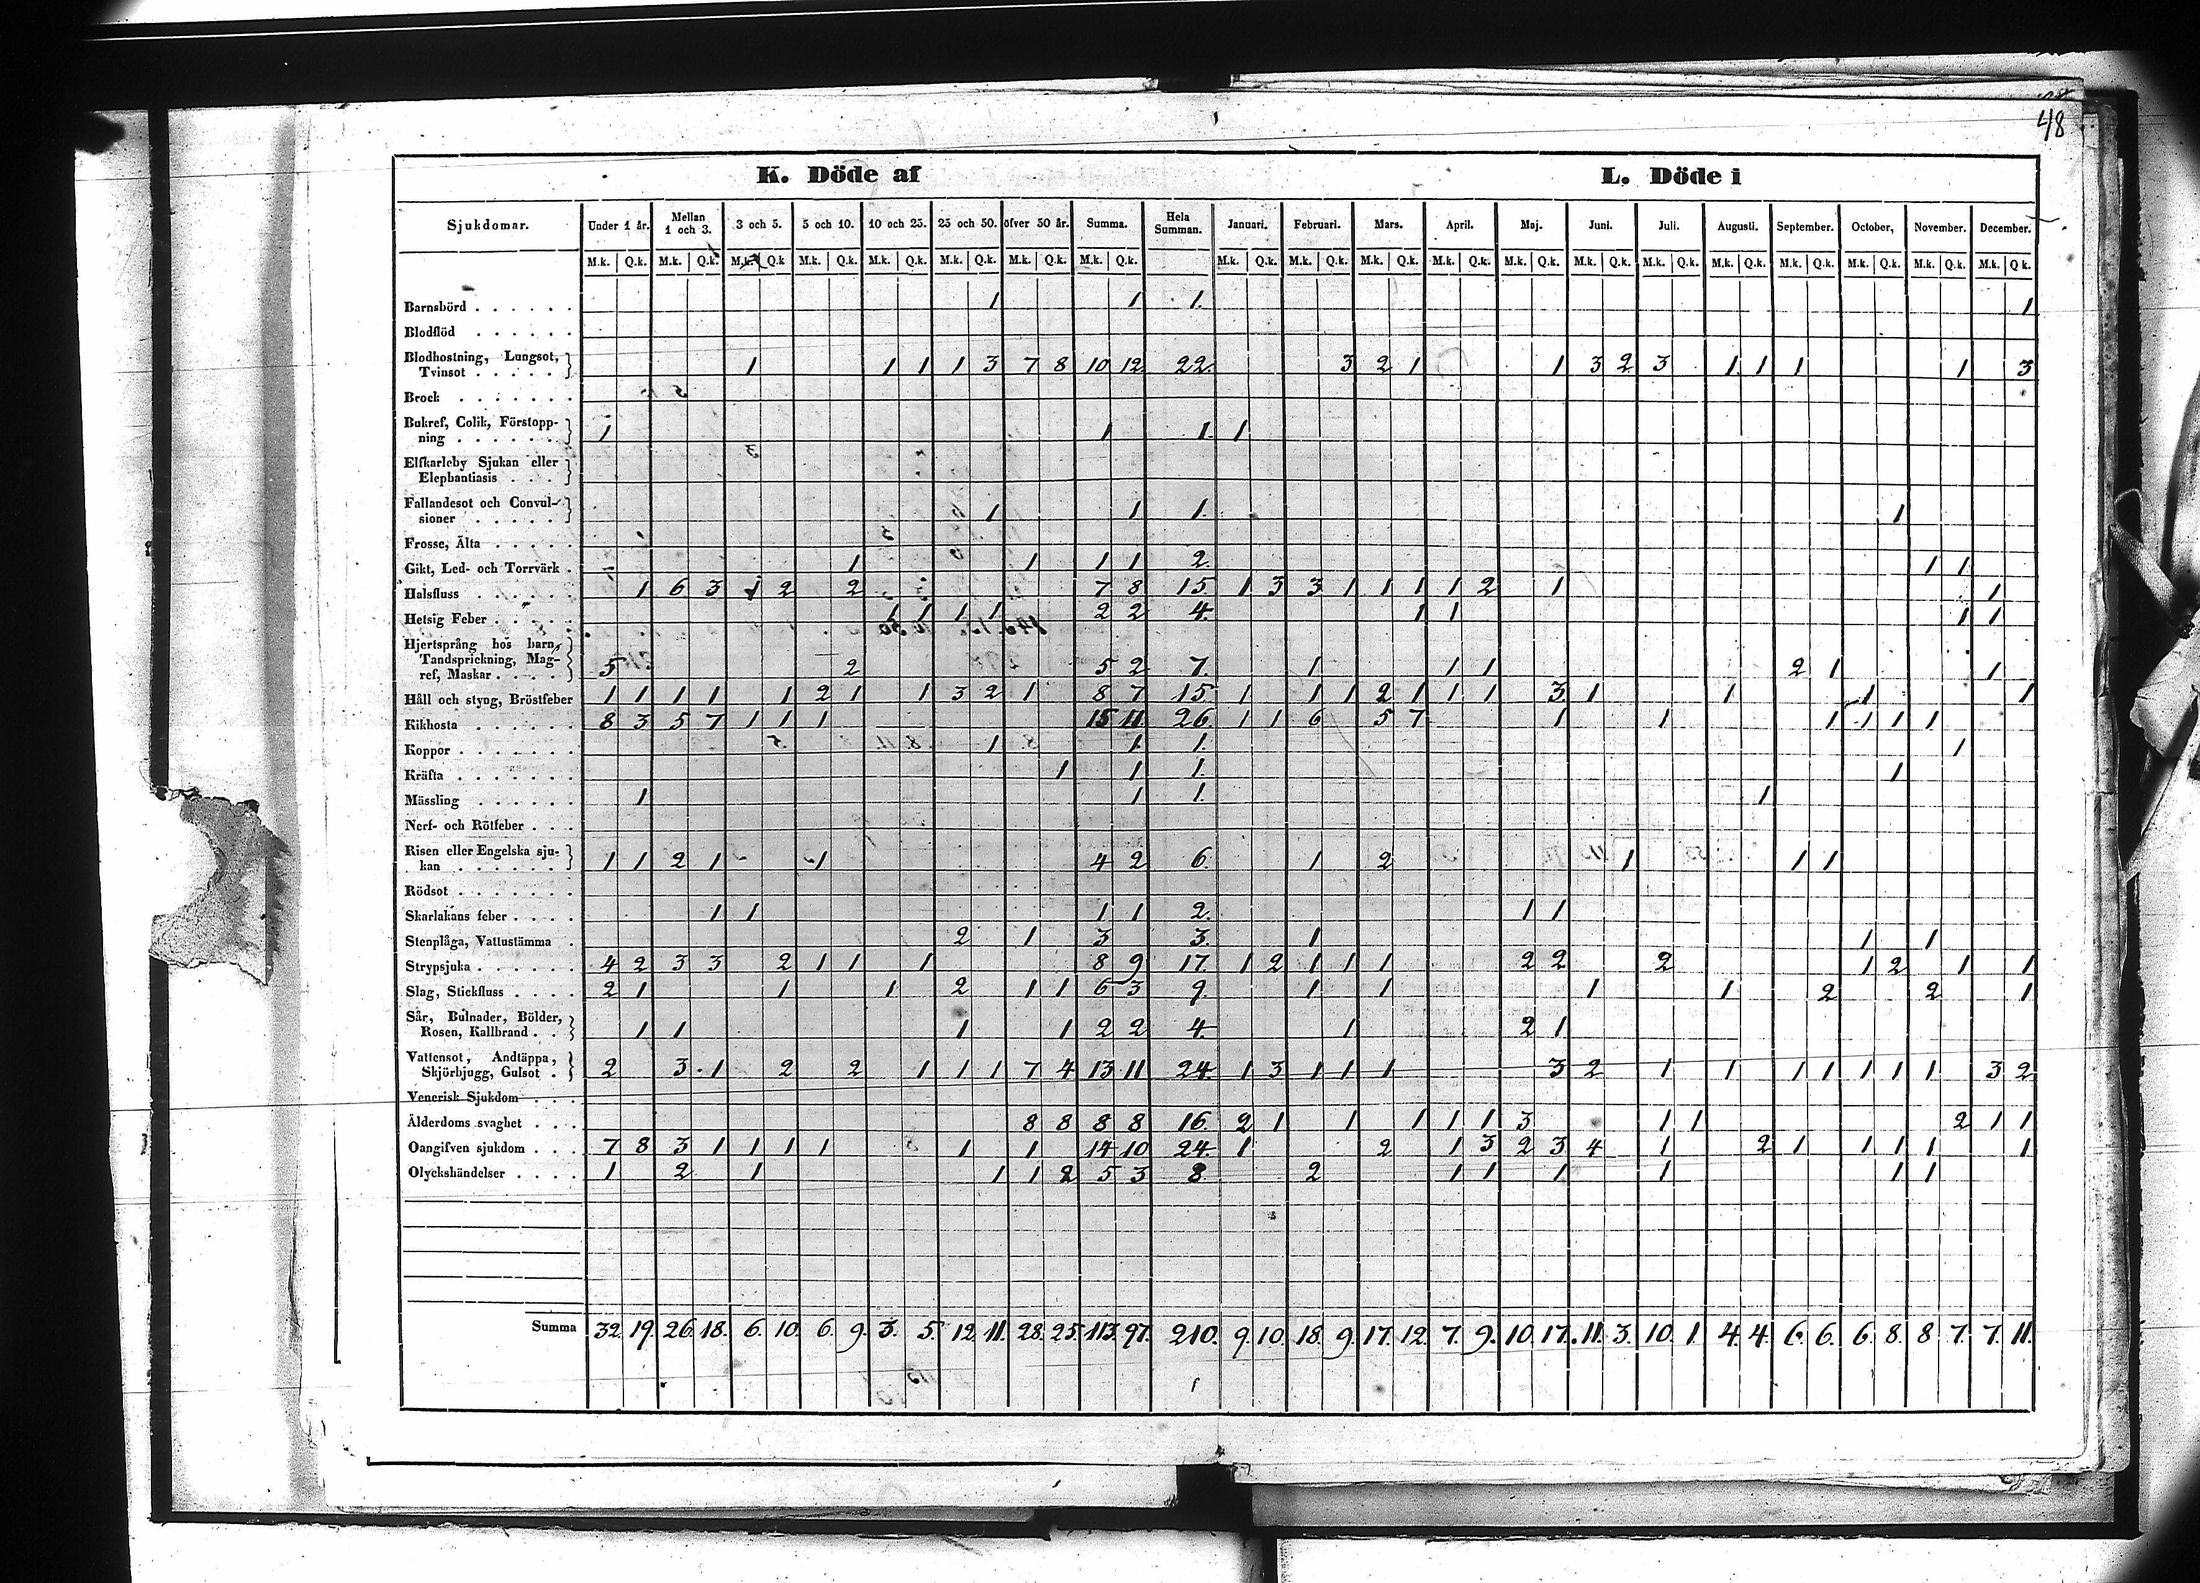 48
K. Döde af L. Döde i
Sjukdomar. Under 1 år. Mellan 1 och 3. 3 och 5. 5 och 10. 10 och 25. 25 och 50. öfver 50 år. Summa. Hela Summan. Januari. Februari. Mars. April. Maj. Juni. Juli. Augusti. September. October, November. December.
M.k. Q.k. M.k. Q.k. M.k. Q.k M.k. Q.k. M.k. Q.k. M.k. Q.k. M.k. Q.k. M.k. Q.k. M.k. Q.k. M.k. Q.k. M.k. Q.k. M.k. Q.k. M.k. Q.k. M.k. Q.k. M.k. Q.k. M.k. Q.k. M.k. Q.k. M.k. Q.k. M.k. Q.k. M.k. Q k.
Barnsbörd . . . . . . 1 1 1. 1
Blodflöd . . . . . .
Blodhostning, Lungsot,
Tvinsot . . . . . 1 1 1 1 3 7 8 10 12 22. 3 2 1 1 3 2 3 1 1 1 1 3
Brock . . . . . . .
Bukref, Colik, Förstopp-
ning . . . . . . . 1 1 1. 1
Elfkarleby Sjukan eller
Elephantiasis . . .
Fallandesot och Convul-
sioner . . . . . 1 1 1. 1
Frosse, Älta . . . . .
Gikt, Led- och Torrvärk . 1 1 1 1 2. 1 1
Halsfluss . . . . . . 1 6 3 1 2 2 7 8 15. 1 3 3 1 1 1 1 2 1 1
Hetsig Feber . . . . . 1 1 1 1 2 2 4. 1 1 1 1
Hjertsprång hos barn,
Tandsprickning, Mag-
ref, Maskar . . . . 5 2 5 2 7. 1 1 1 2 1 1
Håll och styng, Bröstfeber 1 1 1 1 1 2 1 1 3 2 1 8 7 15. 1 1 1 2 1 1 1 3 1 1 1 1
Kikhosta . . . . . . 8 3 5 7 1 1 1 15 11 26. 1 1 6 5 7 1 1 1 1 1 1
Koppor . . . . . . . 1 1. 1. 1
Kräfta . . . . . . . 1 1 1. 1
Mässling . . . . . . 1 1 1. 1
Nerf- och Rötfeber . . .
Risen eller Engelska sju-
kan . . . . . . . 1 1 2 1 1 4 2 6. 1 2 1 1 1
Rödsot . . . . . . .
Skarlakans feber . . . . 1 1 1 1 2. 1 1
Stenplåga, Vattustämma . 2 1 3 3. 1 1 1
Strypsjuka . . . . . . 4 2 3 3 2 1 1 1 8 9 17. 1 2 1 1 1 2 2 2 1 2 1 1
Slag, Stickfluss . . . . 2 1 1 1 2 1 1 6 3 9. 1 1 1 1 2 2 1
Sår, Bulnader, Bölder,
Rosen, Kallbrand . . 1 1 1 1 2 2 4. 1 2 1
Vattensot, Andtäppa,
Skjörbjugg, Gulsot . 2 3 1 2 2 1 1 1 7 4 13 11 24. 1 3 1 1 1 3 2 1 1 1 1 1 1 1 3 2
Venerisk Sjukdom . . .
Ålderdoms svaghet . . . 8 8 8 8 16. 2 1 1 1 1 1 3 1 1 2 1 1
Oangifven sjukdom . . . 7 8 3 1 1 1 1 1 1 14 10 24. 1 2 1 3 2 3 4 1 2 1 1 1 1 1
Olyckshändelser . . . . 1 2 1 1 1 2 5 3 8. 2 1 1 1 1 1 1
Summa 32. 19. 26. 18. 6. 10. 6. 9. 3. 5. 12. 11. 28. 25. 113. 97. 210. 9. 10. 18. 9. 17. 12. 7. 9. 10. 17. 11. 3. 10. 1. 4. 4. 6. 6. 6. 8. 8. 7. 7. 11.